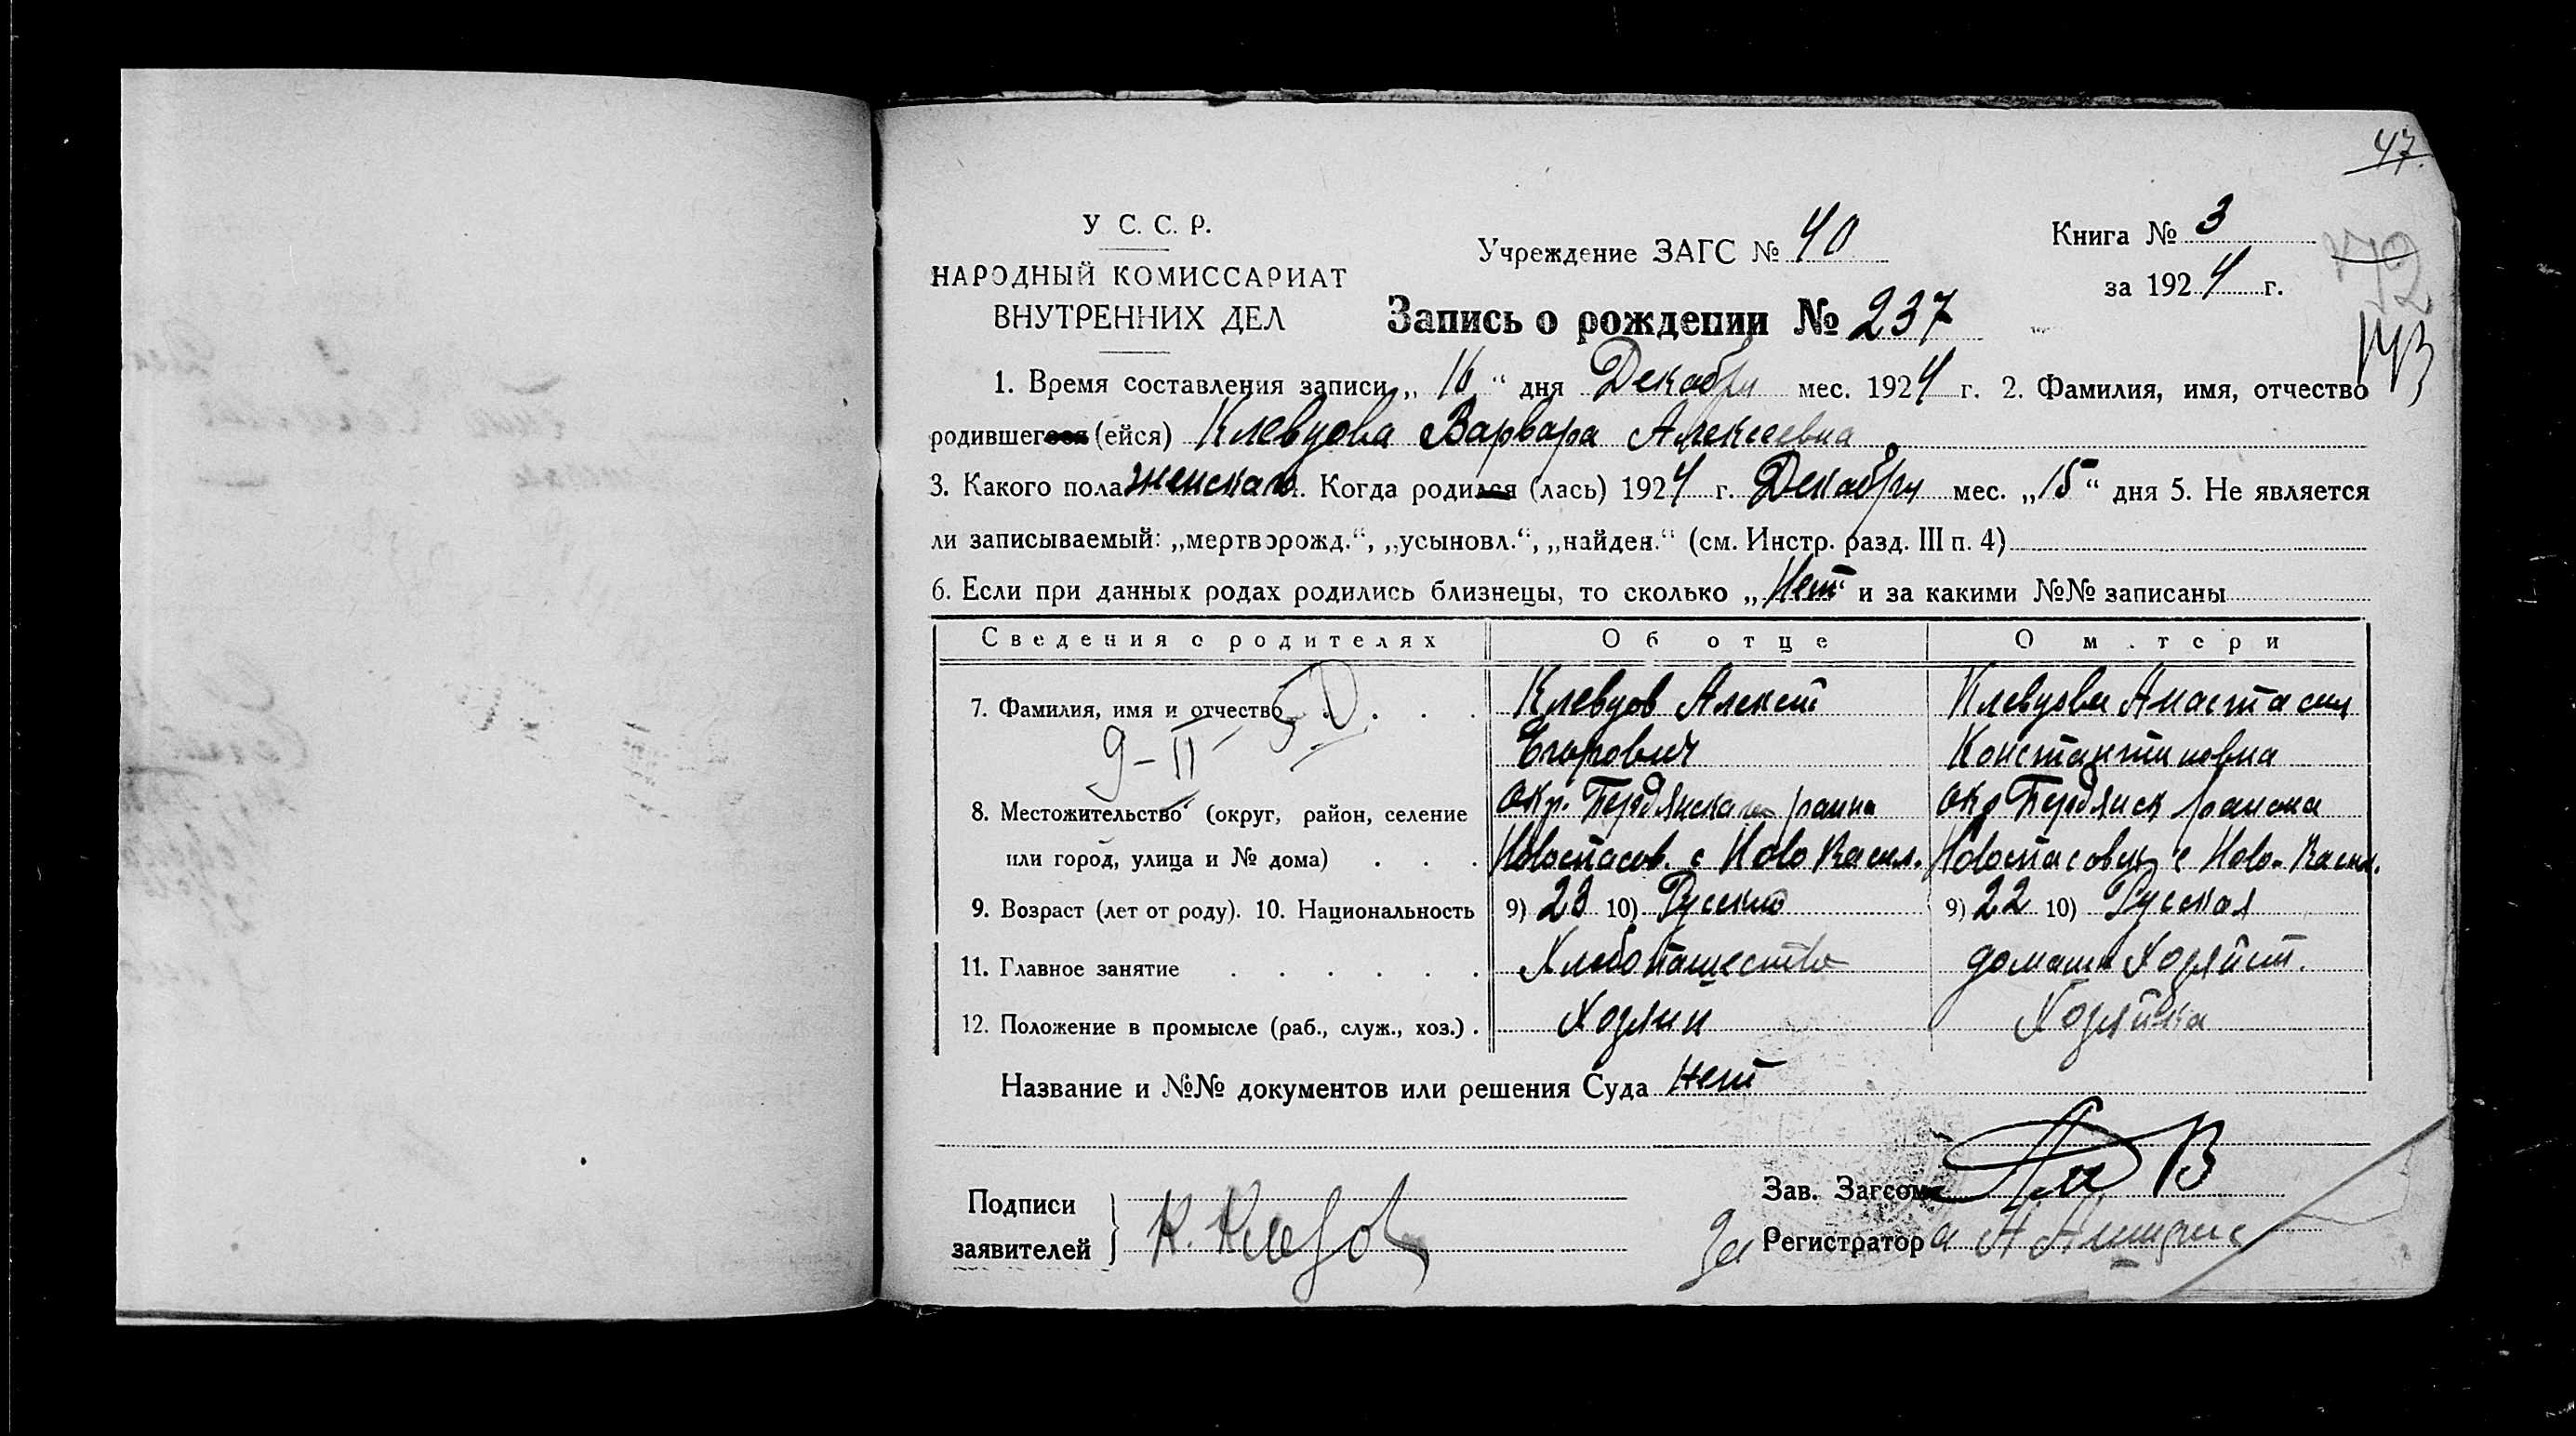 47.
У С. С. Р.
НАРОДНЫЙ КОМИССАРИАТ
ВНУТРЕННИХ ДЕЛ
Учреждение ЗАГС № 40
Книга № 3
за 1924 г.
72
Запись о рождении № 237
1. Время составления записи „ 16 “ дня Декабря мес. 1924 г. 2. Фамилия, имя, отчество
родившегося (ейся) Клевцова Варвара Алексеевна
3. Какого пола женскаго. Когда родился (лась) 1924 г. Декабря мес. „15“ дня 5. Не является
ли записываемый: „мертворожд.“, „усыновл.“, „найден.“ (см. Инстр. разд. III п. 4)
6. Если при данных родах родились близнецы, то сколько „Нет“ и за какими №№ записаны
Сведения о родителях Об отце О м.тери
7. Фамилия, имя и отчество Клевцов Алексей Клевцова Анастасия
9-II Егорович Константиновна
8. Местожительство (округ, район, селение Окр. Бердянскаго раина Окр Бердянск района
или город, улица и № дома) Новоспасов. с Ново Васил. Новоспасовск с Ново-Васил.
9. Возраст (лет от роду). 10. Национальность 9) 23 10) Русский 9) 22 10) Русская
11. Главное занятие Хлебопашество домашн Хозяйст.
12. Положение в промысле (раб., служ., хоз.) Хозяин Хозяйка
Название и №№ документов или решения Суда Нет
Подписи
заявителей
К.
Зав. Загсом
За Регистратора